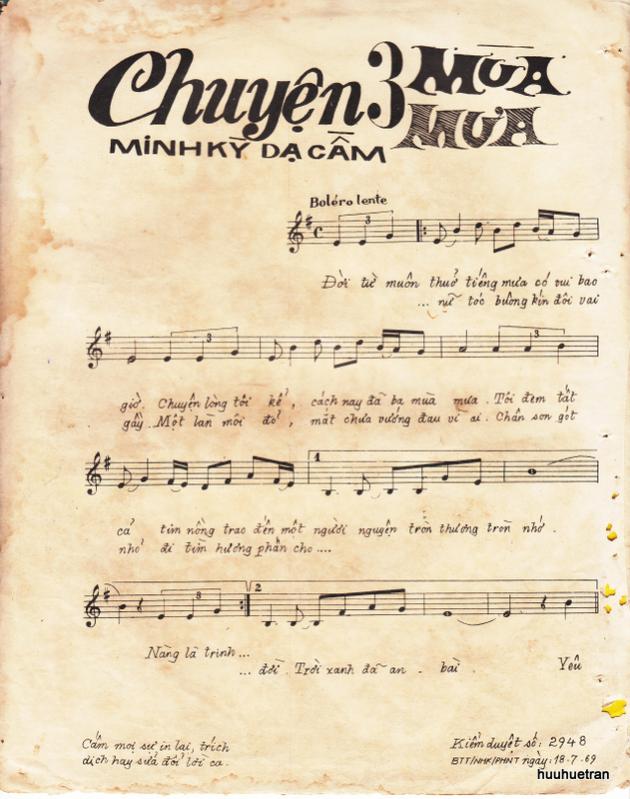 Chuyện 3 MÙA MƯA
MINH KỲ DẠ CẦM
Boléro lente
3
Đời từ muôn thuở tiếng mưa có vui bao
... nữ tóc buông kín đôi vai
3
3
giờ. Chuyện lòng tôi kể, cách nay đã ba mùa mưa. Tôi đem tất
gầy. Một lần môi đỏ, mắt chưa vướng đau vì ai. Chân son gót
1
cả tim nồng trao đến một người nguyện tròn thương tròn nhớ.
nhỏ đi tìm hương phấn cho....
3
2
Nàng là trinh...
... đời. Trời xanh đã an - bài. Yêu
Cấm mọi sự in lại, trích
dịch hay sửa đổi lời ca.
Kiểm duyệt số: 2948
BTT/NHK/PHNT ngày: 18-7-69
huuhuetran